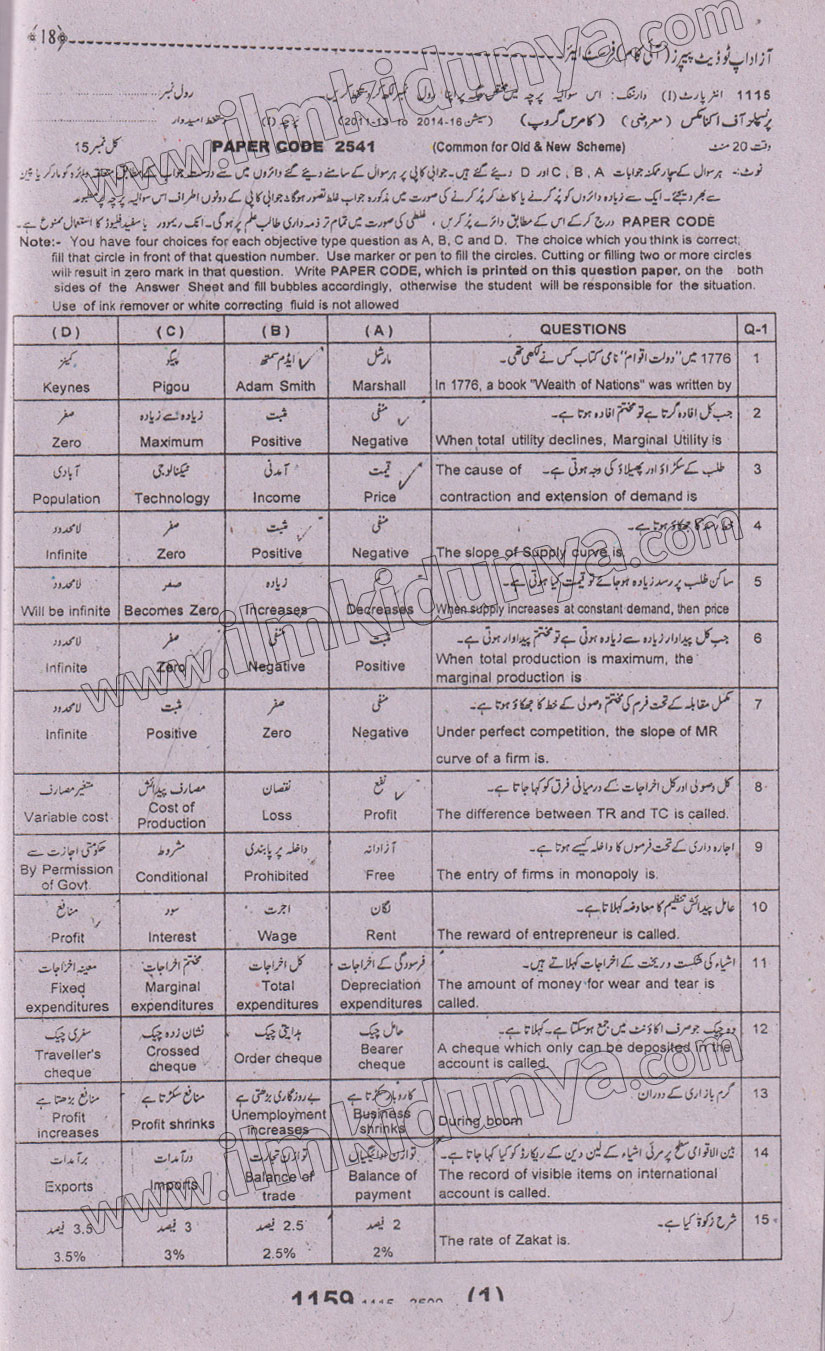 ﴿18﴾
آزاد اپ ٹو ڈیٹ پیپرز (آئی کام) فرسٹ ایئر
1115 انٹر پارٹ (I) وارننگ: اس سوالیہ پرچہ میں مختص جگہ پر اپنا رول نمبر لکھ کر دستخط کریں۔ رول نمبر
پرنسپلز آف اکنامکس (معروضی) (کامرس گروپ) (سیشن 16-2014 to 2011-13) پرچہ (I) دستخط امیدوار
وقت 20 منٹ (Common for Old & New Scheme) PAPER CODE 2541 کل نمبر 15
نوٹ:- ہر سوال کے چار ممکنہ جوابات A، B، C اور D دیئے گئے ہیں۔ جوابی کاپی پر ہر سوال کے سامنے دیئے گئے دائروں میں سے درست جواب کے مطابق متعلقہ دائرہ کو مارکر یا پین
سے بھر دیجئے۔ ایک سے زیادہ دائروں کو پُر کرنے یا کاٹ کر پُر کرنے کی صورت میں مذکورہ جواب غلط تصور ہوگا۔ جوابی کاپی کے دونوں اطراف اس سوالیہ پرچہ پر مطبوعہ
PAPER CODE درج کر کے اس کے مطابق دائرے پُر کریں، غلطی کی صورت میں تمام تر ذمہ داری طالب علم پر ہوگی۔ انک ریموور یا سفید فلیوڈ کا استعمال ممنوع ہے۔
Note:- You have four choices for each objective type question as A, B, C and D. The choice which you think is correct;
fill that circle in front of that question number. Use marker or pen to fill the circles. Cutting or filling two or more circles
will result in zero mark in that question. Write PAPER CODE, which is printed on this question paper, on the both
sides of the Answer Sheet and fill bubbles accordingly, otherwise the student will be responsible for the situation.
Use of ink remover or white correcting fluid is not allowed
(D) (C) (B) (A) QUESTIONS Q-1
کینز پیگو ایڈم سمتھ مارشل 1776 میں "دولت اقوام" نامی کتاب کس نے لکھی تھی۔ 1
Keynes Pigou Adam Smith Marshall In 1776, a book "Wealth of Nations" was written by
صفر زیادہ سے زیادہ مثبت منفی جب کل افادہ گرتا ہے تو مختتم افادہ ہوتا ہے۔ 2
Zero Maximum Positive Negative When total utility declines, Marginal Utility is
آبادی ٹیکنالوجی آمدنی قیمت طلب کے سکڑاؤ اور پھیلاؤ کی وجہ ہوتی ہے۔ The cause of 3
Population Technology Income Price contraction and extension of demand is
لامحدود صفر مثبت منفی خط رسد کا جھکاؤ ہوتا ہے۔ 4
Infinite Zero Positive Negative The slope of Supply curve is
لامحدود صفر زیادہ کم ساکن طلب پر رسد زیادہ ہو جائے تو قیمت کیا ہوتی ہے۔ 5
Will be infinite Becomes Zero Increases Decreases When supply increases at constant demand, then price
لامحدود صفر منفی مثبت جب کل پیداوار زیادہ سے زیادہ ہوتی ہے تو مختتم پیداوار ہوتی ہے۔ 6
Infinite Zero Negative Positive When total production is maximum, the
marginal production is
لامحدود مثبت صفر منفی مکمل مقابلہ کے تحت فرم کی مختتم وصولی کے خط کا جھکاؤ ہوتا ہے۔ 7
Infinite Positive Zero Negative Under perfect competition, the slope of MR
curve of a firm is.
متغیر مصارف مصارف پیدائش نقصان نفع کل وصولی اور کل اخراجات کے درمیانی فرق کو کہا جاتا ہے۔ 8
Variable cost Cost of Production Loss Profit The difference between TR and TC is called.
حکومتی اجازت سے مشروط داخلہ پر پابندی آزادانہ اجارہ داری کے تحت فرموں کا داخلہ کیسے ہوتا ہے۔ 9
By Permission of Govt. Conditional Prohibited Free The entry of firms in monopoly is.
منافع سود اجرت لگان عامل پیدائش تنظیم کا معاوضہ کہلاتا ہے۔ 10
Profit Interest Wage Rent The reward of entrepreneur is called.
معینہ اخراجات مختتم اخراجات کل اخراجات فرسودگی کے اخراجات اشیاء کی شکست و ریخت کے اخراجات کہلاتے ہیں۔ 11
Fixed expenditures Marginal expenditures Total expenditures Depreciation expenditures The amount of money for wear and tear is
called.
سفری چیک نشان زدہ چیک ہدایتی چیک حامل چیک وہ چیک جو صرف اکاؤنٹ میں جمع ہو سکتا ہے۔ کہلاتا ہے۔ 12
Traveller's cheque Crossed cheque Order cheque Bearer cheque A cheque which only can be deposited in the
account is called.
منافع بڑھتا ہے منافع سکڑتا ہے بے روزگاری بڑھتی ہے کاروبار سکڑتا ہے گرم بازاری کے دوران 13
Profit increases Profit shrinks Unemployment increases Business shrinks During boom
برآمدات درآمدات توازن تجارت توازن ادائیگیاں بین الاقوامی سطح پر مرئی اشیاء کے لین دین کے ریکارڈ کو کیا کہا جاتا ہے۔ 14
Exports Imports Balance of trade Balance of payment The record of visible items on international
account is called.
3.5 فیصد 3 فیصد 2.5 فیصد 2 فیصد شرح زکوٰۃ کیا ہے۔ 15
3.5% 3% 2.5% 2% The rate of Zakat is.
1159 1115 (1)
www.ilmkidunya.com
www.ilmkidunya.com
www.ilmkidunya.com
www.ilmkidunya.com